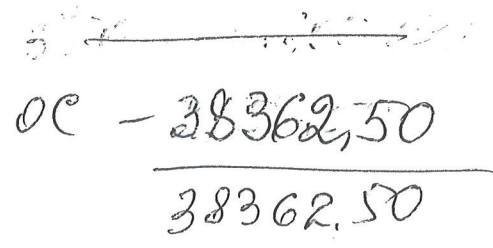 ОС - 38362,50
38362.50